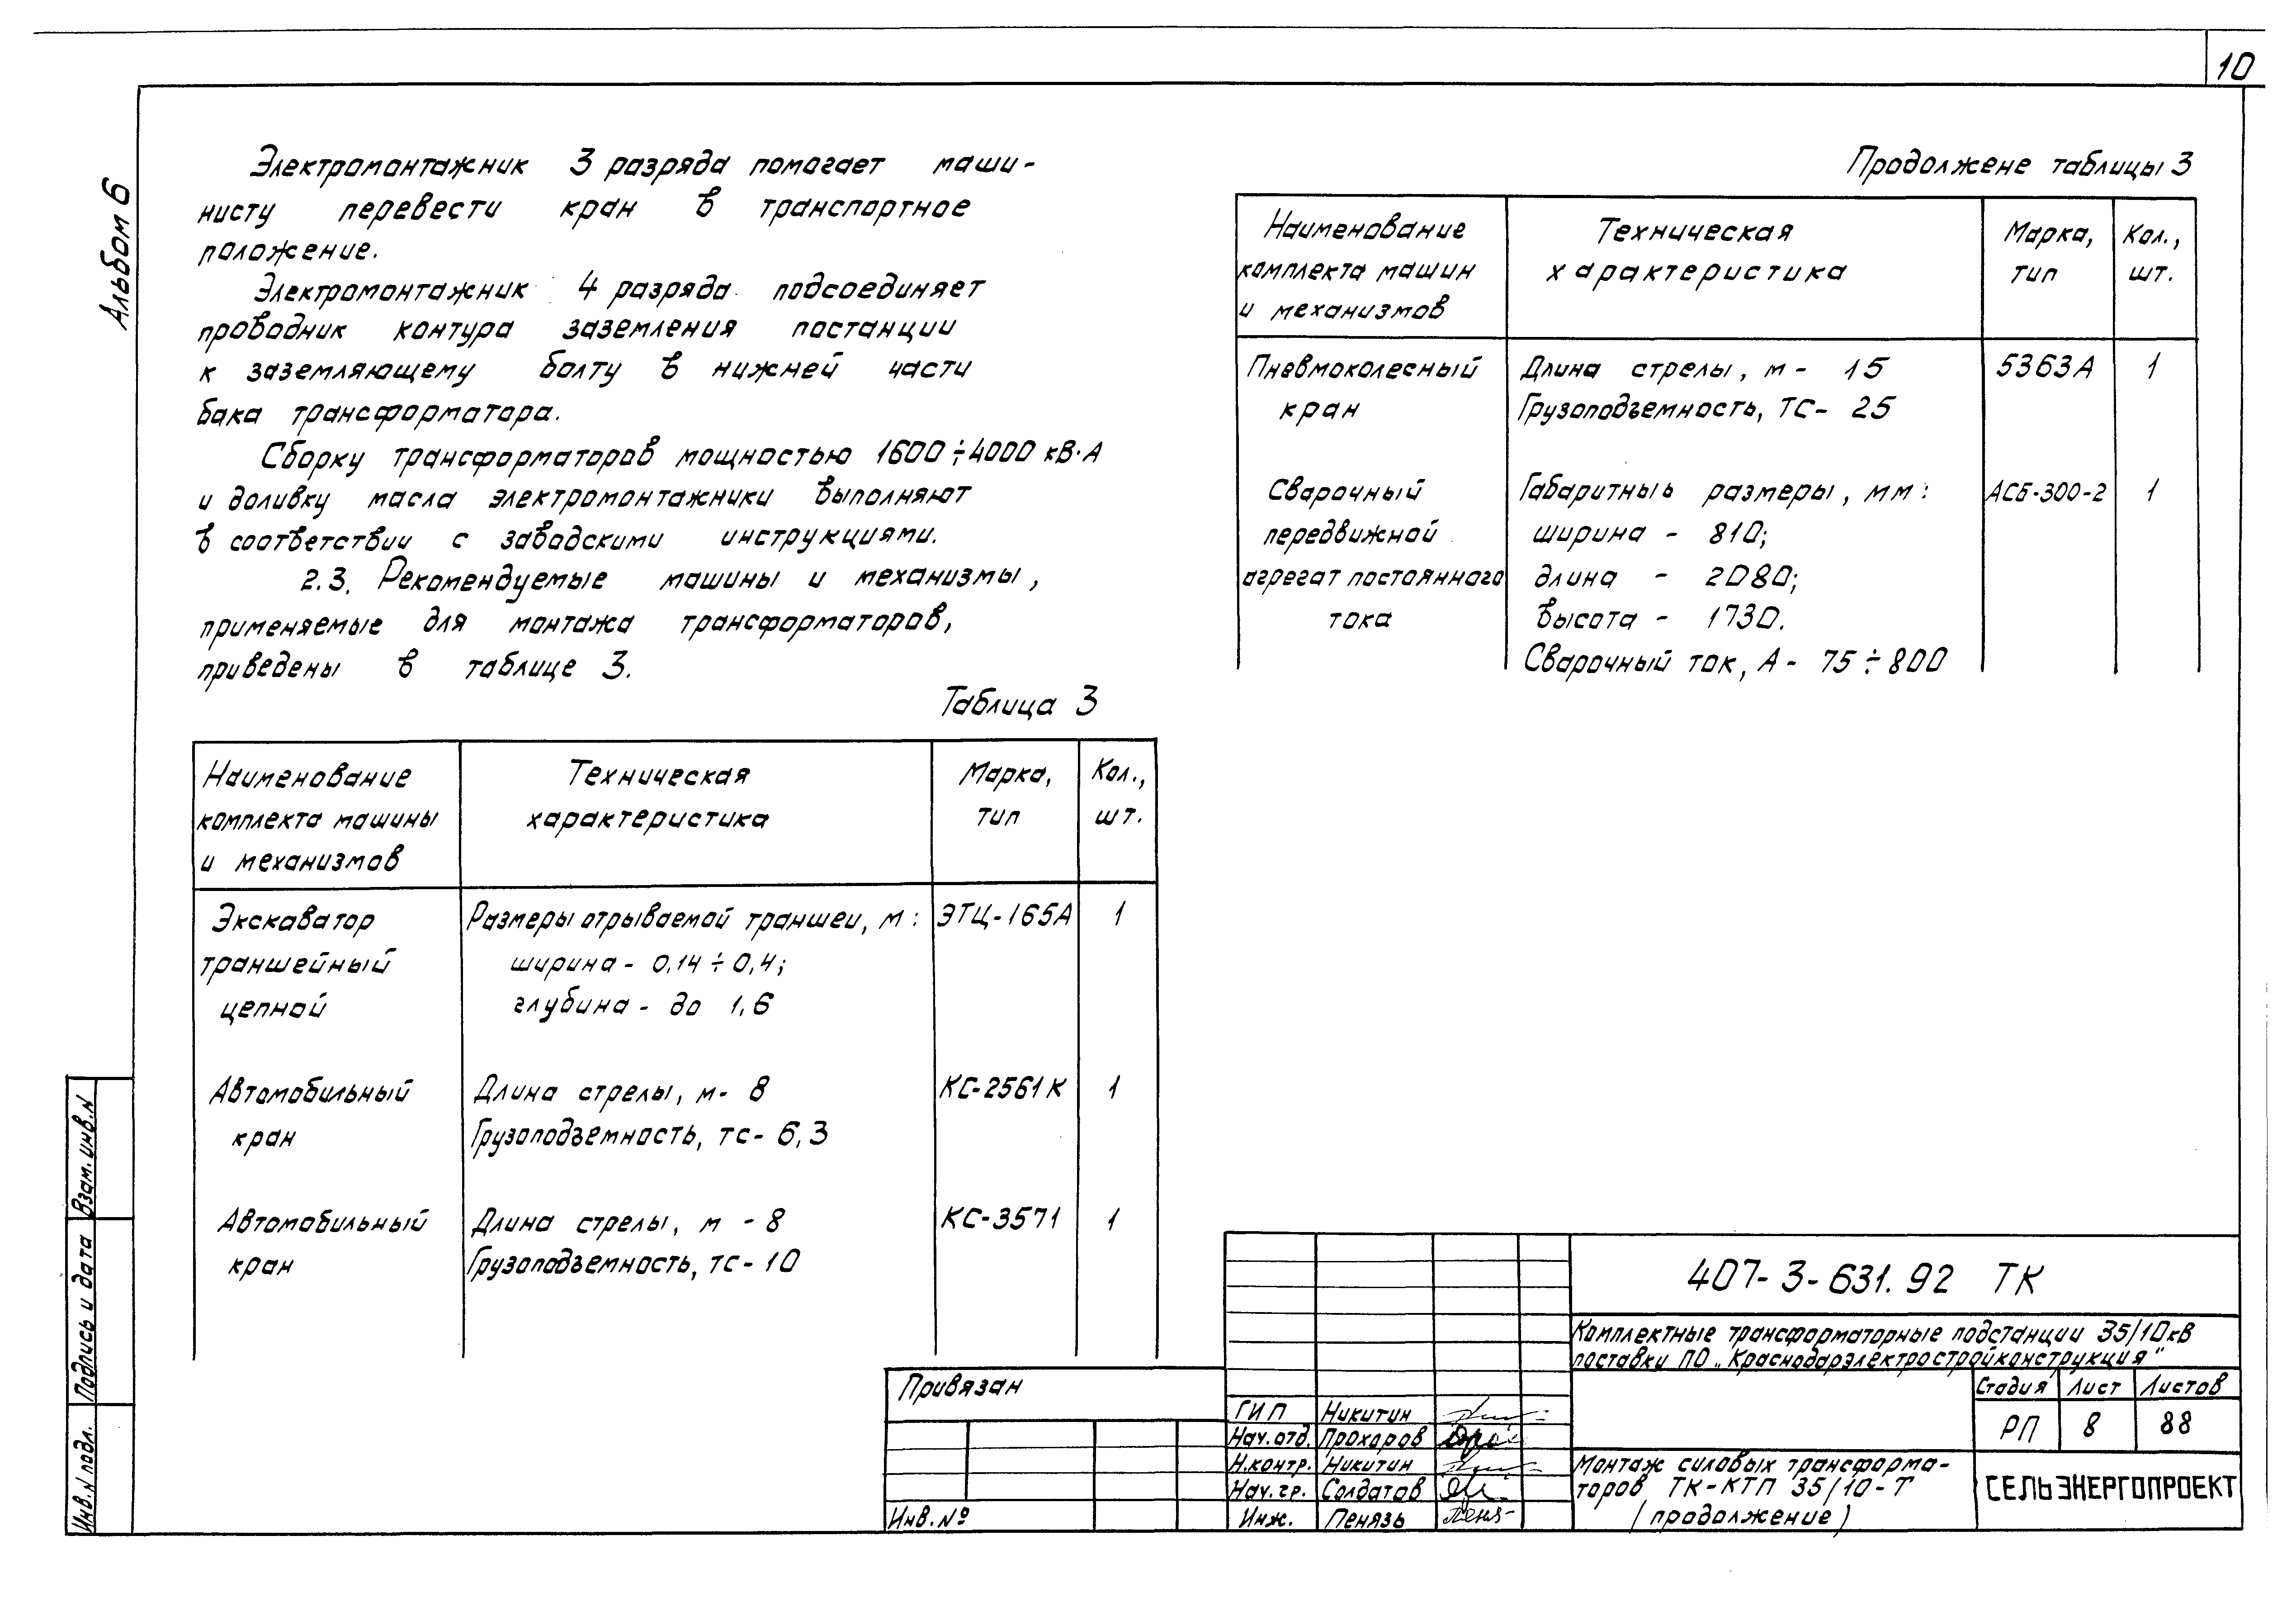 10
Альбом 6
Электромонтажник 3 разряда помогает маши-
нисту перевести кран в транспортное
положение.
Электромонтажник 4 разряда подсоединяет
проводник контура заземления постанции
к заземляющему болту в нижней части
бака трансформатора.
Сборку трансформаторов мощностью 1600÷4000 кВ·А
и доливку масла электромонтажники выполняют
в соответствии с заводскими инструкциями.
2.3. Рекомендуемые машины и механизмы,
применяемые для монтажа трансформаторов,
приведены в таблице 3.
Таблица 3
Наименование Техническая Марка, Кол.,
комплекта машины характеристика тип шт.
и механизмов
Экскаватор Размеры отрываемой траншеи, м: ЭТЦ-165А 1
траншейный ширина - 0,14÷0,4;
цепной глубина - до 1,6
Автомобильный Длина стрелы, м- 8 КС-2561К 1
кран Грузоподъемность, тс- 6,3
Автомобильный Длина стрелы, м - 8 КС-3571 1
кран Грузоподъемность, тс-10
Продолжене таблицы 3
Наименование Техническая Марка, Кол.,
комплекта машин характеристика тип шт.
и механизмов
Пневмоколесный Длина стрелы, м- 15 5363А 1
кран Грузоподъемность, ТС- 25
Сварочный Габаритныь размеры, мм: АСБ-300-2 1
передвижной ширина - 810;
агрегат постоянного длина - 2080;
тока высота - 1730.
Сварочный ток, А- 75÷800
Взам. инв. N
Подпись и дата
Инв. N подл.
Привязан
Инв. №
407-3-631.92 ТК
Комплектные трансформаторные подстанции 35/10кВ
поставки ПО „Краснодарэлектростройконструкция"
Стадия Лист Листов
РП 8 88
ГИП Никитин
Нач. отд. Прохоров
Н.контр. Никитин
Нач. гр. Солдатов
Инж. Пенязь Пеня-
Монтаж силовых трансформа-
торов ТК-КТП 35/10-Т
(продолжение)
СЕЛЬЭНЕРГОПРОЕКТ